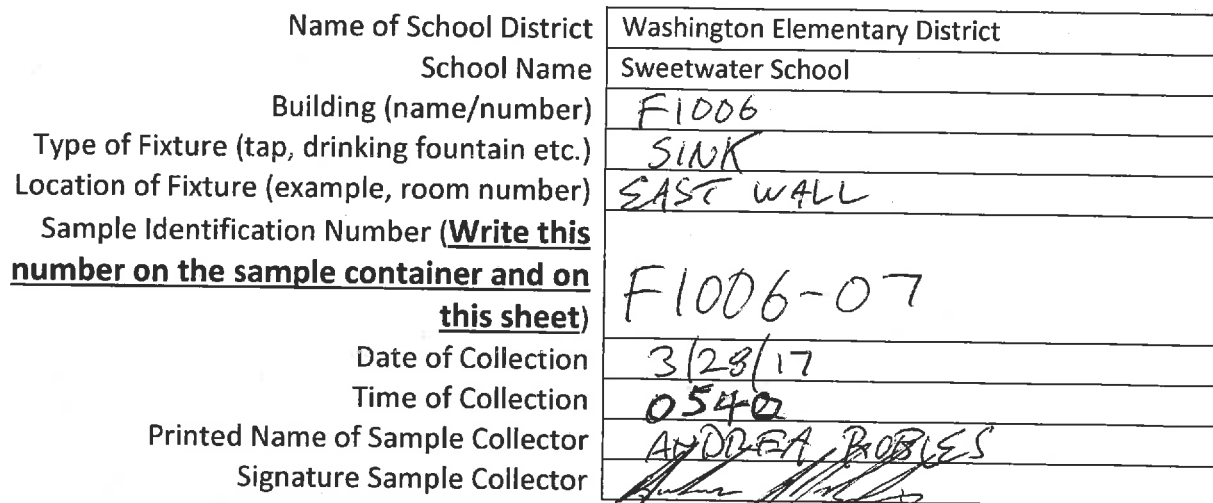 Name of School District Washington Elementary District
School Name Sweetwater School
Building (name/number) F1006
Type of Fixture (tap, drinking fountain etc.) SINK
Location of Fixture (example, room number) EAST WALL
Sample Identification Number (Write this
number on the sample container and on
this sheet) F1006-07
Date of Collection 3/28/17
Time of Collection 0540
Printed Name of Sample Collector ANDREA ROBLES
Signature Sample Collector